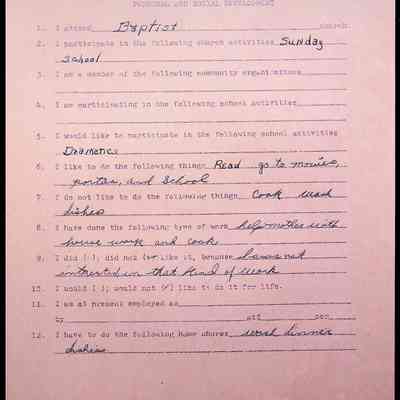 PERSONAL AND SOCIAL DEVELOPMENT
1. I attend Baptist church
2. I participate in the following church activities Sunday
School
3. I am a member of the following community organizations
4. I am participating in the following school activities
5. I would like to participate in the following school activities
Dramatics
6. I like to do the following things Read go to movies,
parties, and School
7. I do not like to do the following things Cook wash
dishes
8. I have done the following type of work help mother with
house work and cook
9. I did ( ); did not (✓) like it, because I was not
in that kind of work
10. I would ( ); would not (✓) like to do it for life.
11. I am at present employed as
by att per
12. I have to do the following home chores wash dinner
dishes